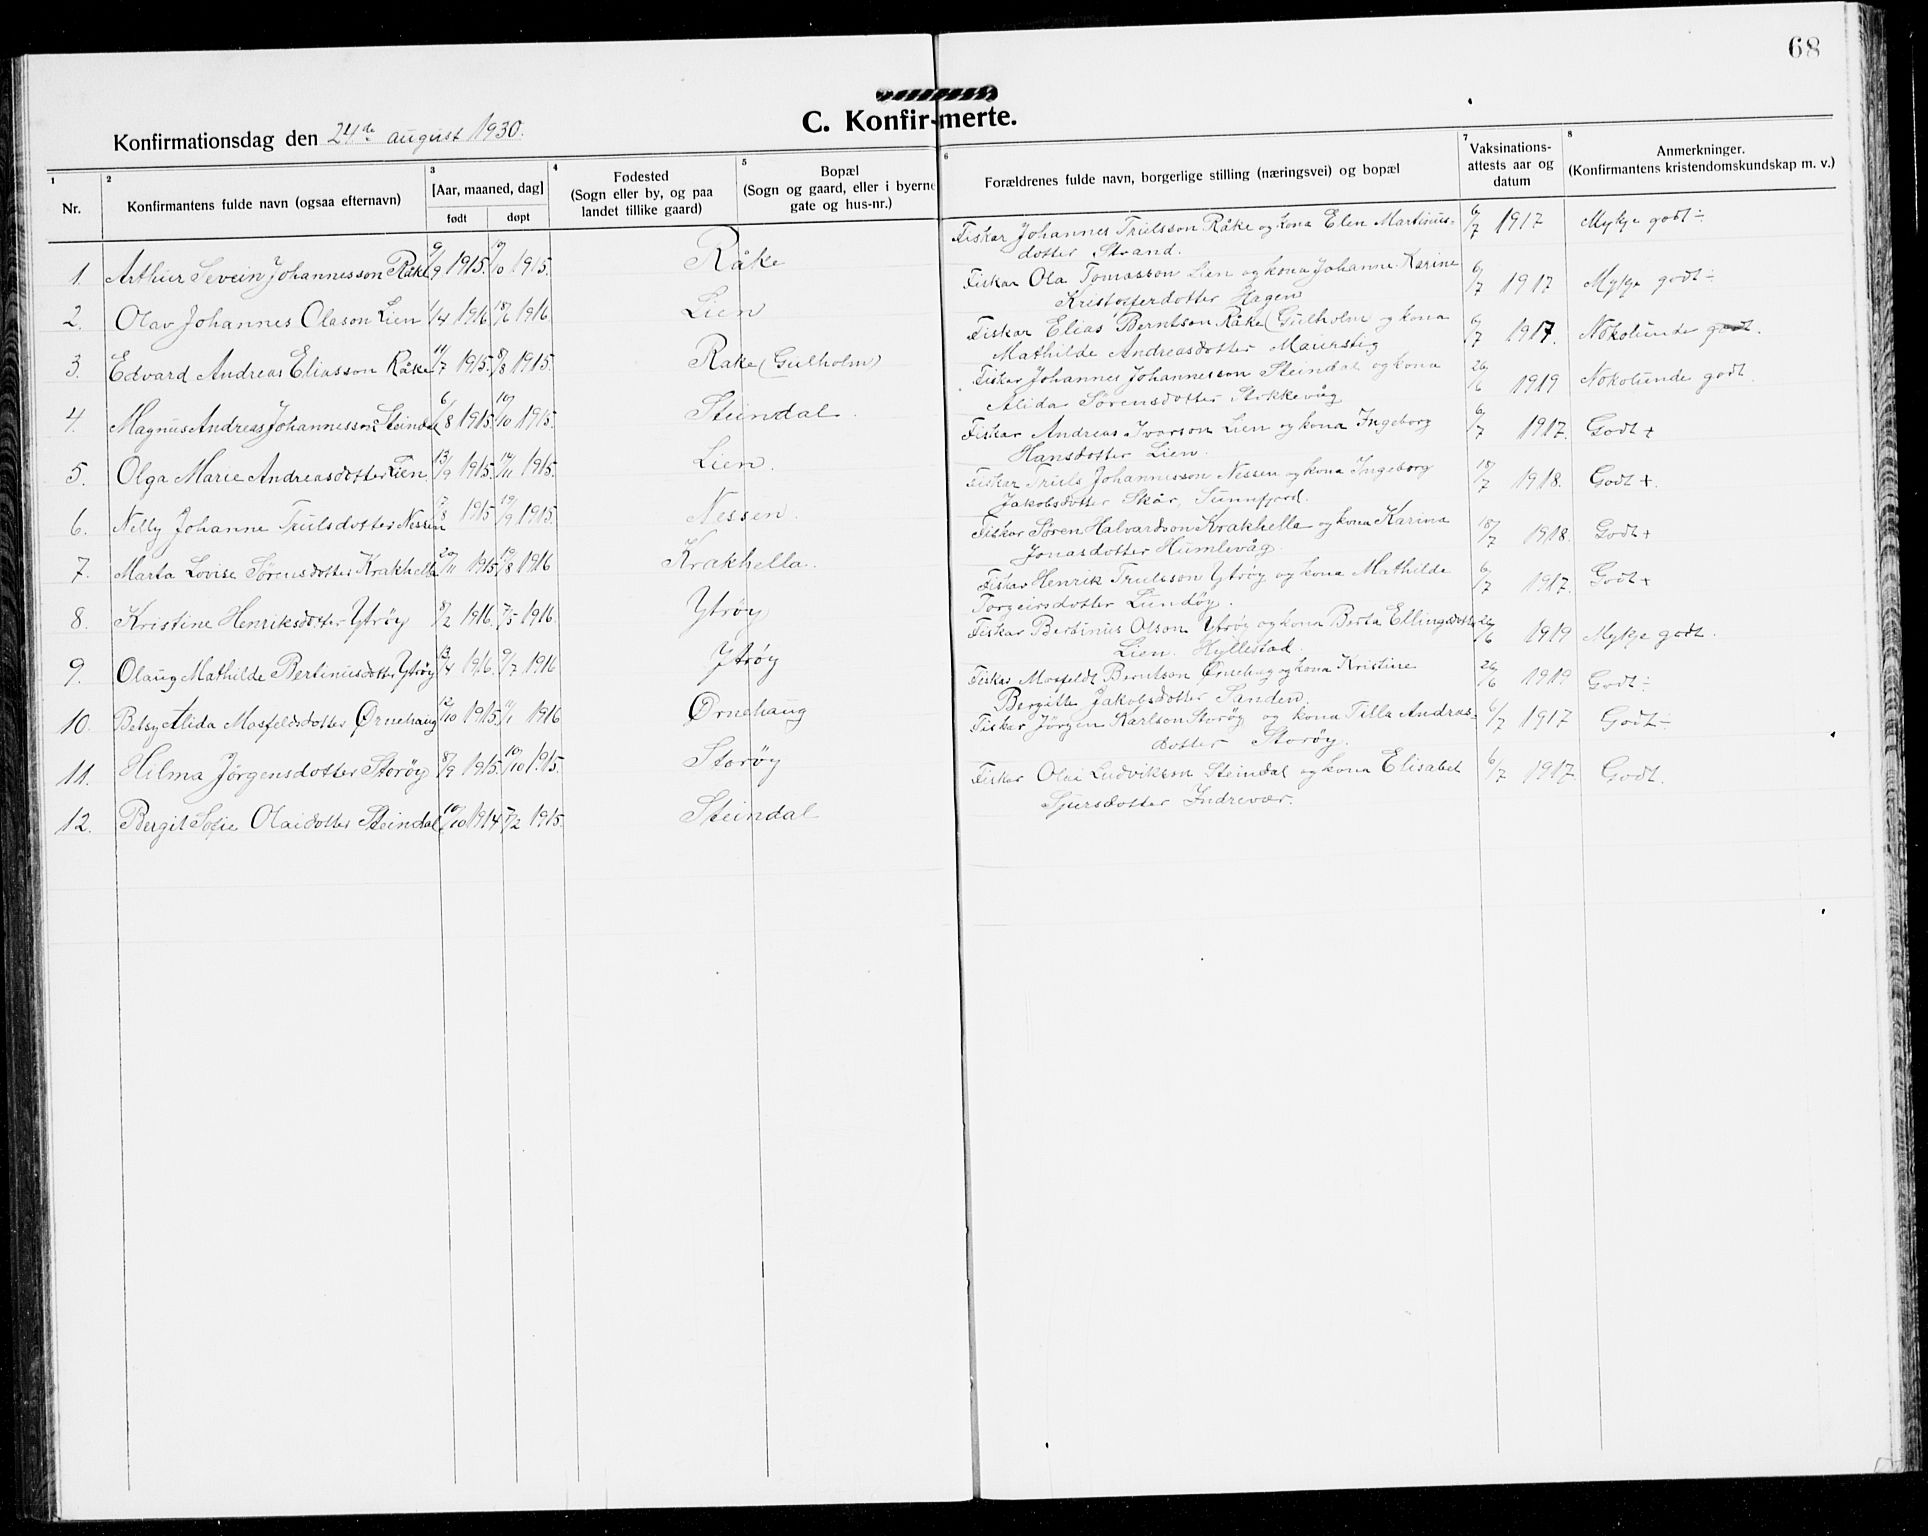 68
C. Konfirmerte.
Konfirmationsdag den 24de august 1930.
1 2 3 4 5 6 7 8
Nr.
Konfirmantens fulde navn (ogsaa efternavn)
[Aar, maaned, dag]
født døpt
Fødested
(Sogn eller by, og paa
landet tillike gaard)
Bopæl
(Sogn og gaard, eller i byerne
gate og hus-nr.)
Forældrenes fulde navn, borgerlige stilling (næringsvei) og bopæl
Vaksinations-
attests aar og
datum
Anmerkninger.
(Konfirmantens kristendomskundskap m. v.)
1. Arthur Severin Johannesson Råke 9/9 1915. 19/10 1915. Råke
Fiskar Johannes Trulsson Råke og kona Elen Martinus-
dotter Strand. 6/7 1917 Mykje godt ÷
2. Olav Johannes Olason Lien 1/4 1916 18/6 1916 Lien
Fiskar Ola Tomasson Lien og kona Johanne Karine
Kristofferdotter Hagen 6/7 1917 Mykje godt ÷
3. Edvard Andreas Eliasson Råke 11/7 1915. 8/8 1915. Råke (Gulholm)
Fiskar Elias Berntson Råke (Gulholm og kona
Mathilde Andreasdotter Maurstig 6/7 1917. Nokolunde godt.
4. Magnus Andreas Johannesson Steindal 6/8 1915 10/10 1915. Steindal.
Fiskar Johannes Johannesson Steindal og kona
Alida Sørensdotter Stokkevåg 26/6 1919 Nokolunde godt
5. Olga Marie Andreasdotter Lien 13/9 1915. 14/11 1915. Lien.
Fiskar Andreas Ivarson Lien og kona Ingeborg
Hansdotter Lien. 6/7 1917. Godt +
6. Nelly Johanne Trulsdotter Nessen 7/8 1915 19/9 1915. Nessen.
Fiskar Truls Johannesson Nessen og kona Ingeborg
Jakobsdotter Skår, Sunnfjord. 18/7 1918. Godt +.
7. Marta Lovise Sørensdotter Krakhella 20/11 1915 19/8 1916 Krakhella.
Fiskar Søren Halvardson Krakhella og kona Karina
Jonasdotter Humlevåg. 18/7 1918. Godt +
8. Kristine Henriksdotter Ytrøy 8/2 1916. 7/5 1916 Ytrøy
Fiskar Henrik Trulsson Ytrøy og kona Mathilde
Torgeirsdotter Lundøy. 6/7 1917. Godt +
9. Olaug Mathilde Bertinusdotter Ytrøy 13/4 1916. 9/7 1916 Ytrøy
Fiskar Bertinus Olson Ytrøy og kona Berta Ellingsdotter
Lien. Hyllestad. 26/6 1919 Mykje godt.
10. Betsy Alida Mosfeldsdotter Ørnehaug 12/10 1915. 1/1 1916 Ørnehaug
Fiskar Mosfeldt Berntson Ørnehaug og kona Kristine
Bergitte Jakobsdotter Sanden 26/6 1919 Godt ÷
11. Hilma Jørgensdotter Storøy 8/9 1915. 10/10 1915. Storøy
Fiskar Jørgen Karlson Storøy og kona Tilla Andreas-
dotter Storøy. 6/7 1917 Godt ÷
12. Bergit Sofie Olaidotter Steindal 10/10 1914 7/2 1915. Steindal
Fiskar Olai Ludvikson Steindal og kona Elisabet
Sjursdotter Indrevær. 6/7 1917 Godt.